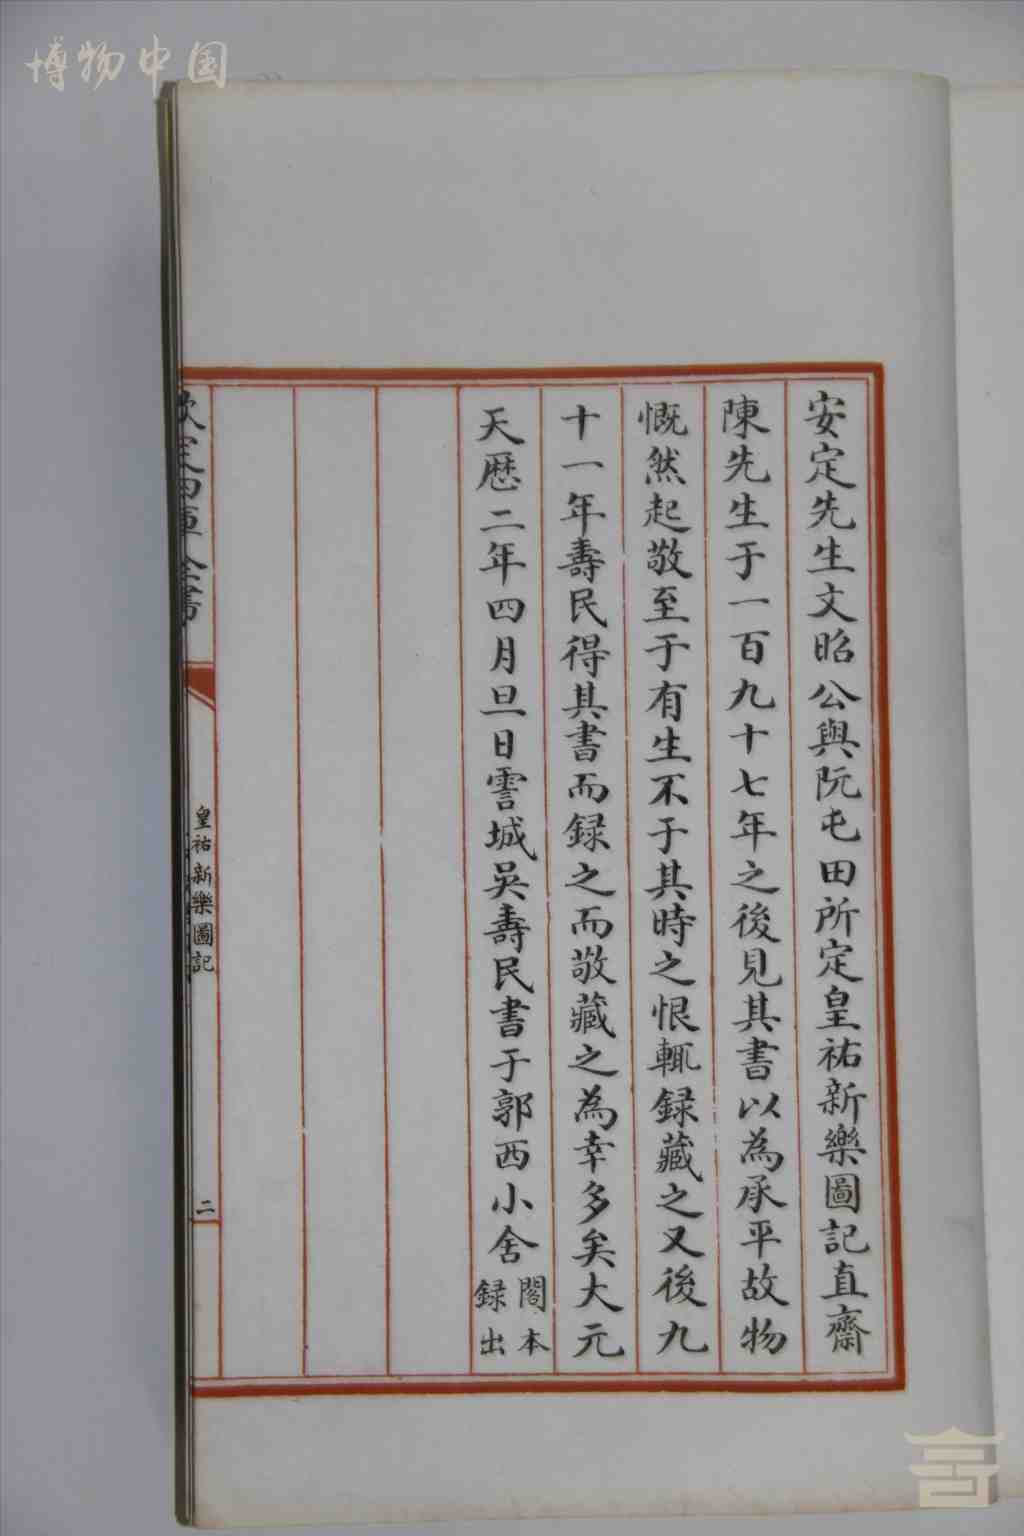 博物中国
安定先生文昭公與阮屯田所定皇祐新樂圖記直齋
陳先生于一百九十七年之後見其書以為承平故物
慨然起敬至于有生不于其時之恨輒録藏之又後九
十一年壽民得其書而録之而敬藏之為幸多矣大元
天歴二年四月旦日霅城吳壽民書于郭西小舍
閣本
録出
欽定四庫全書
皇祐新樂圖記
二